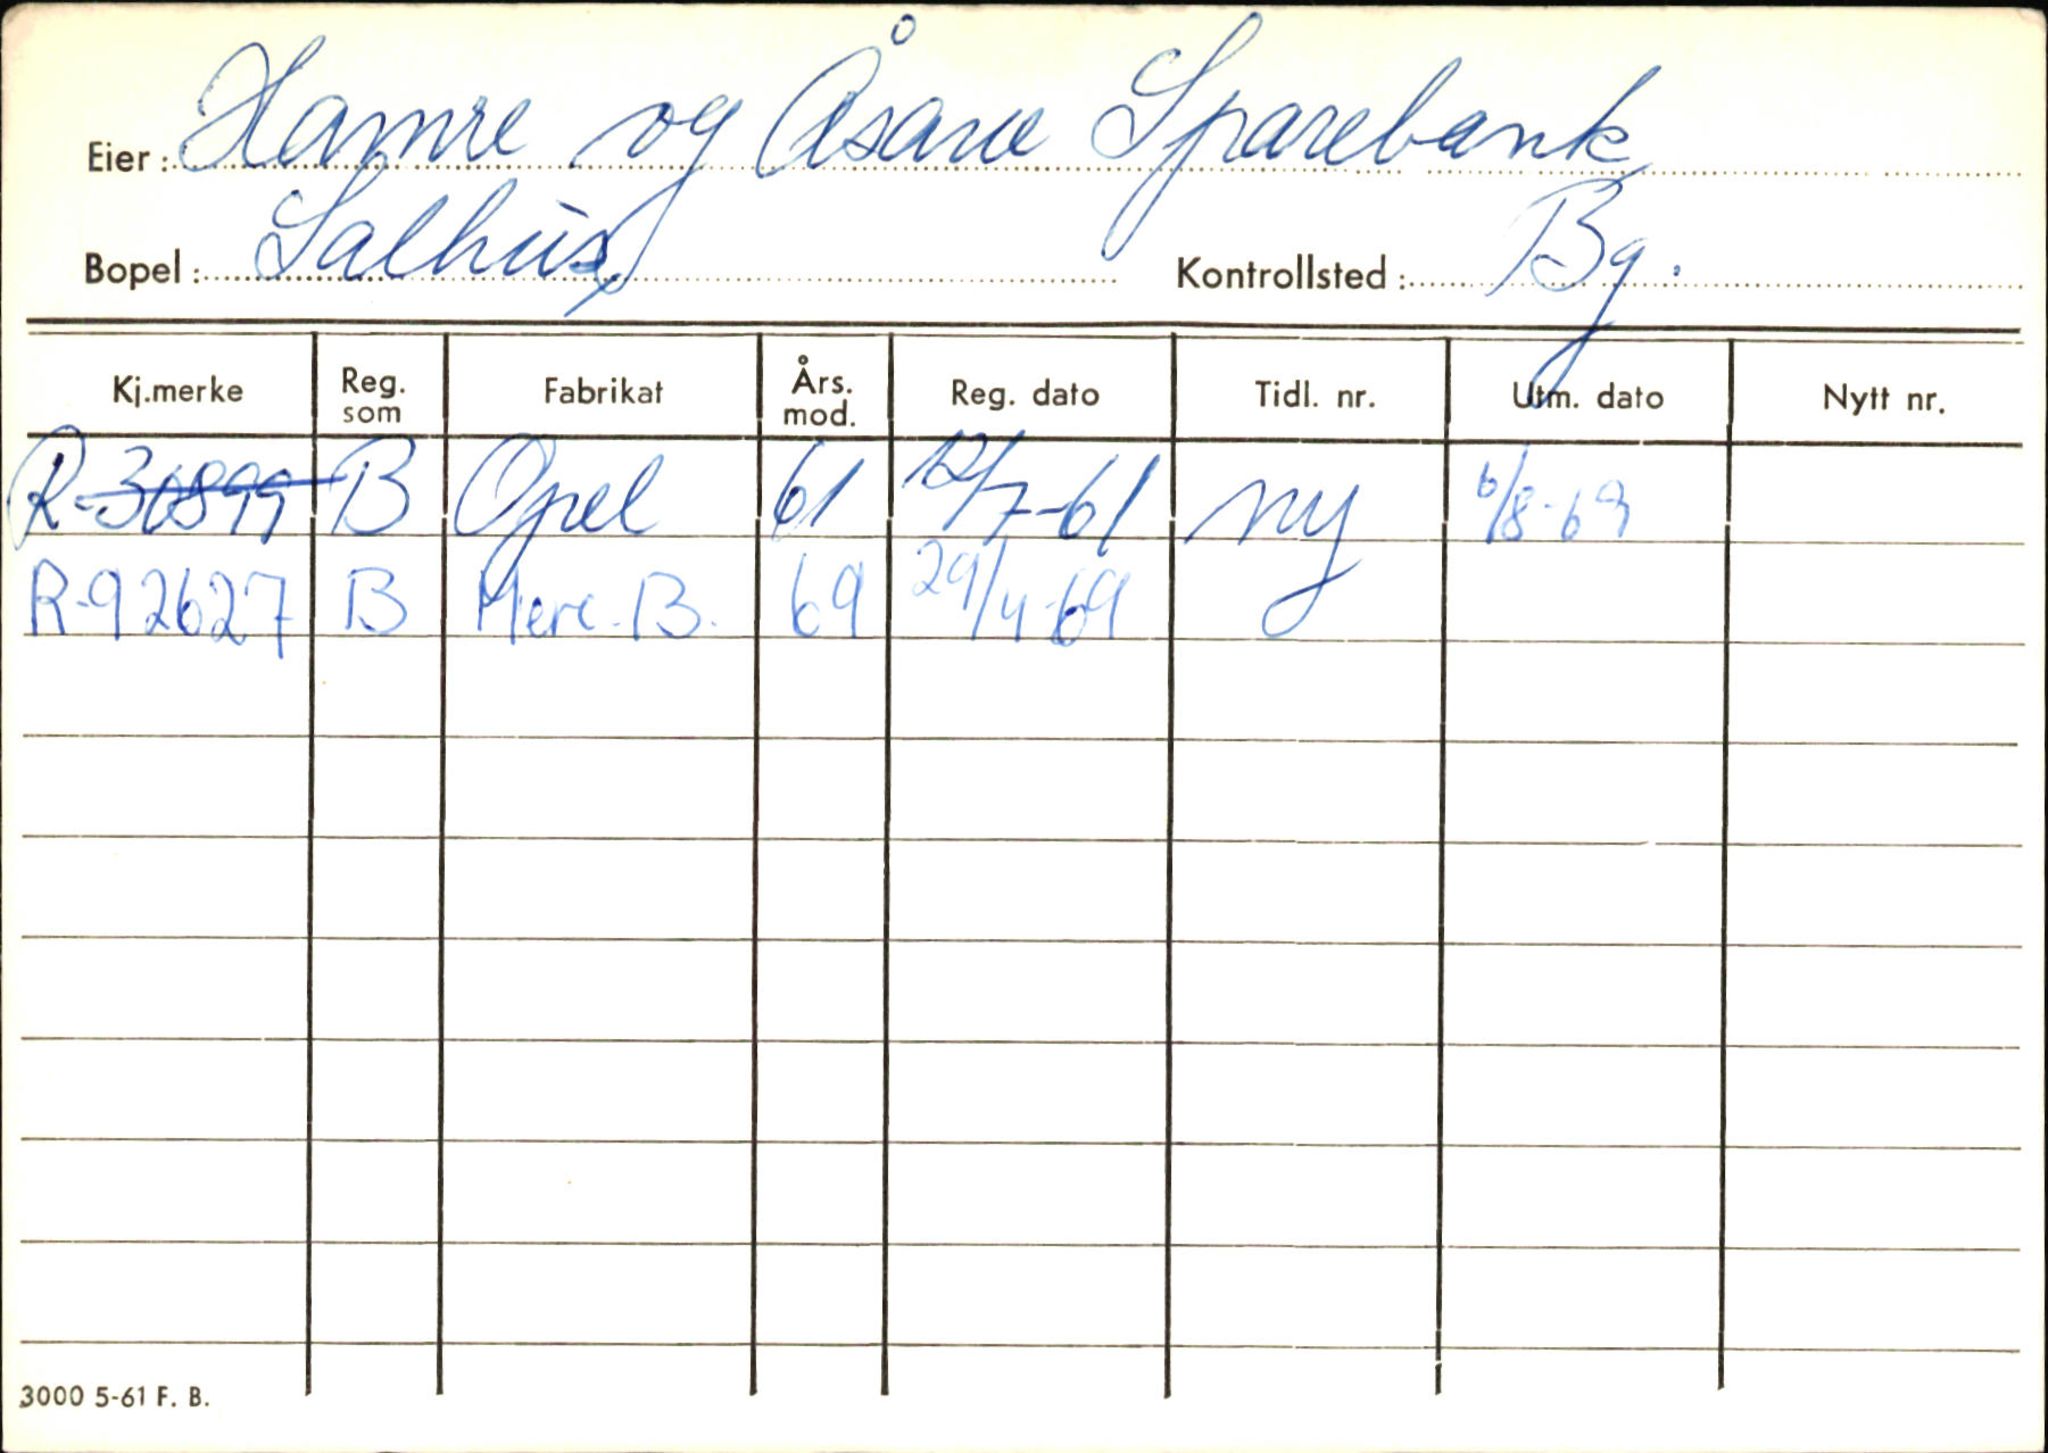 Eier: Hamre og Åsane Sparebank
Bopel: Salhus Kontrollsted: Bg.
Kj.merke Reg. som Fabrikat Års. mod. Reg. dato Tidl. nr. Utm. dato Nytt nr.
R-30899 B Opel 61 12/7-61 ny 6/8-69
R-92627 B Merc. B. 69 29/4-69
3000 5-61 F. B.